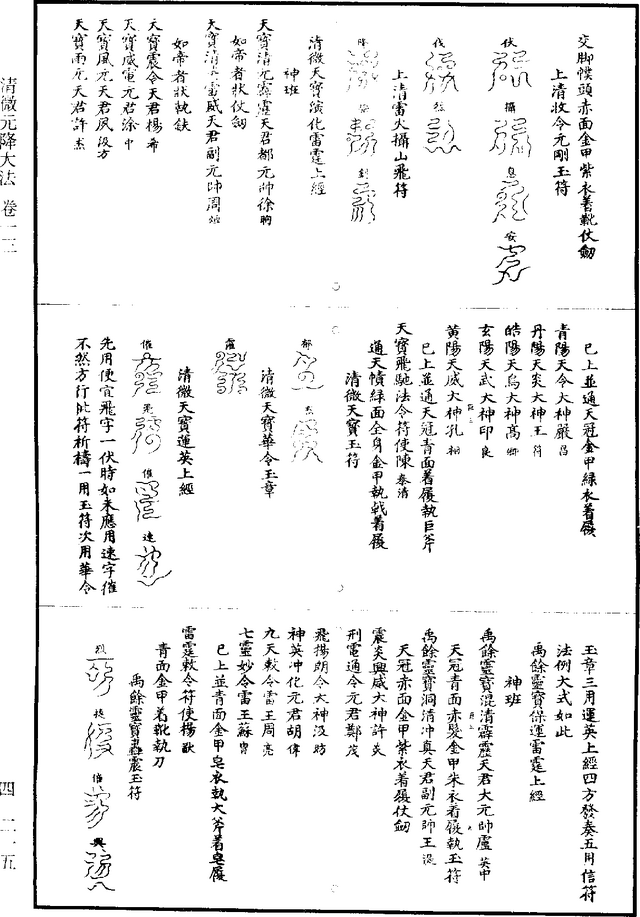 交脚幞頭赤面金甲紫衣著靴仗劒
上清收令元剛玉符
伏 攝 息 安
伐 經
上清雷火攝山飛符
降
清微天寶演化雷霆上經
神班
天寶清元霹靂天君都元帥徐昫
如帝者狀仗劒
天寶清英雷威天君副元帥周
如帝者狀執鈇
天寶震令天君楊希
天寶威電元君涂中
天寶風元天君風汲方
天寶雨元天君許杰
已上並通天冠金甲綠衣着履
青陽天令大神嚴昌
丹陽天炎大神王符
皓陽天烏大神髙卿
玄陽天武大神印良
黃陽天威大神孔
已上並通天冠青面著履執巨斧
天寶飛馳法令符使陳泰清
通天幘綠面全身金甲執戟著履
清微天寶玉符
都
清微天寶華令玉章
清微天寶運英上經
催 飛 催 速
先用便宜飛字一伏時如未應用速字催
不然方行此符祈禱一用玉符次用華令
玉章三用運英上經四方發奏五用信符
法例大式如此
禹餘靈寶保運雷霆上經
神班
禹餘靈寶混清霹靂天君大元帥盧英中
天冠青面赤髮金甲朱衣着履執玉符
禹餘靈寶洞清冲真天君副元帥王
天冠赤面金甲紫衣着履仗劒
震炎興威大神許炎
刑電通令元君鄭茂
飛揚朗令大神汲昉
神英冲化元君胡偉
九天敕令雷王周亮
七靈妙令雷王蘇
已上並青面金甲皂衣執大斧着皂履
雷霆敕令符使楊
青面金甲着靴執刀
禹餘靈寶轟震玉符
烈 催 興
清微元降大法 卷一三
四 二一五